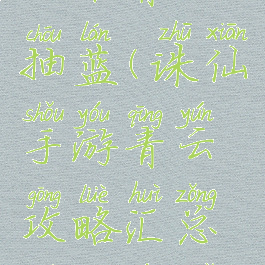 chōu lán zhū xiān
抽蓝(诛仙
shǒu yóu qīng yún
手游青云
gōng lüè huì zǒng
攻略汇总